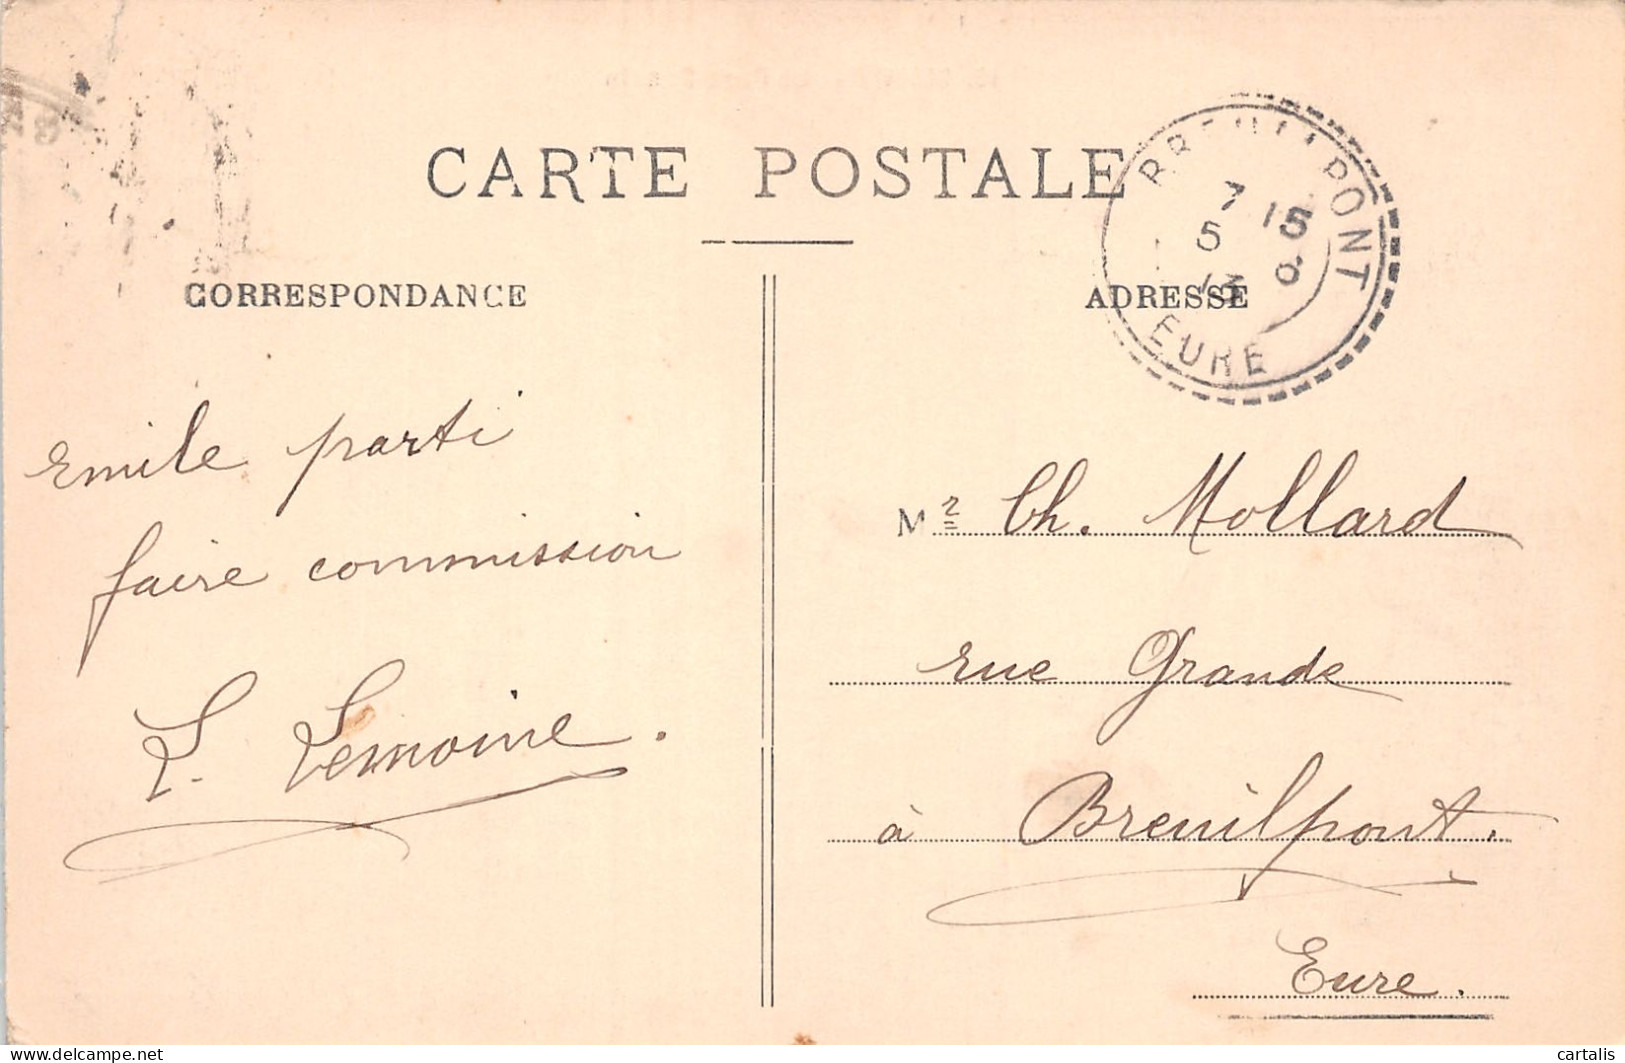 CARTE POSTALE
CORRESPONDANCE
ADRESSE
BREUILPONT
7 15
5
13
EURE
Emile parti
faire commission
L. Lemoine.
Mr Ch. Mollard
rue Grande
à Breuilpont.
Eure.
delcampe.net
cartalis